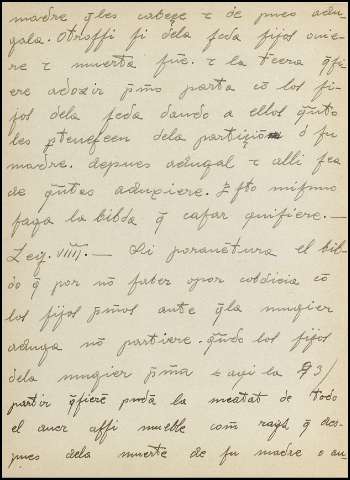 madre q̃les cabeçe τ de pues adu-
gala. Otroffi fi dela feda fijos ouie-
re τ muerta fuẽ. τ la tc̃era q̃fi-
ere aduzir p̃mo parta cõ los fi-
jos dela feda dando a ellos q̃nto
les ptenefcen dela partiçiõ d fu
madre. depues adugal τ alli fea
de q̃ntos aduxiere. Efto mifmo
faga la bibda q̃ cafar quifiere.—
Leg. VIIIJ.— Si poranẽtura el bib-
do q̃ por nõ faber opor cobdicia cõ
los fijos p̃mos ante q̃la mugier
aduga nõ partiere. q̃ndo los fijos
dela mugier p̃ma la 93/
partir q̃fierẽ puedã la meatat de todo
el auer affi mueble com̃ raiȝ q̃ des-
pues dela muerte de fu madre o au-